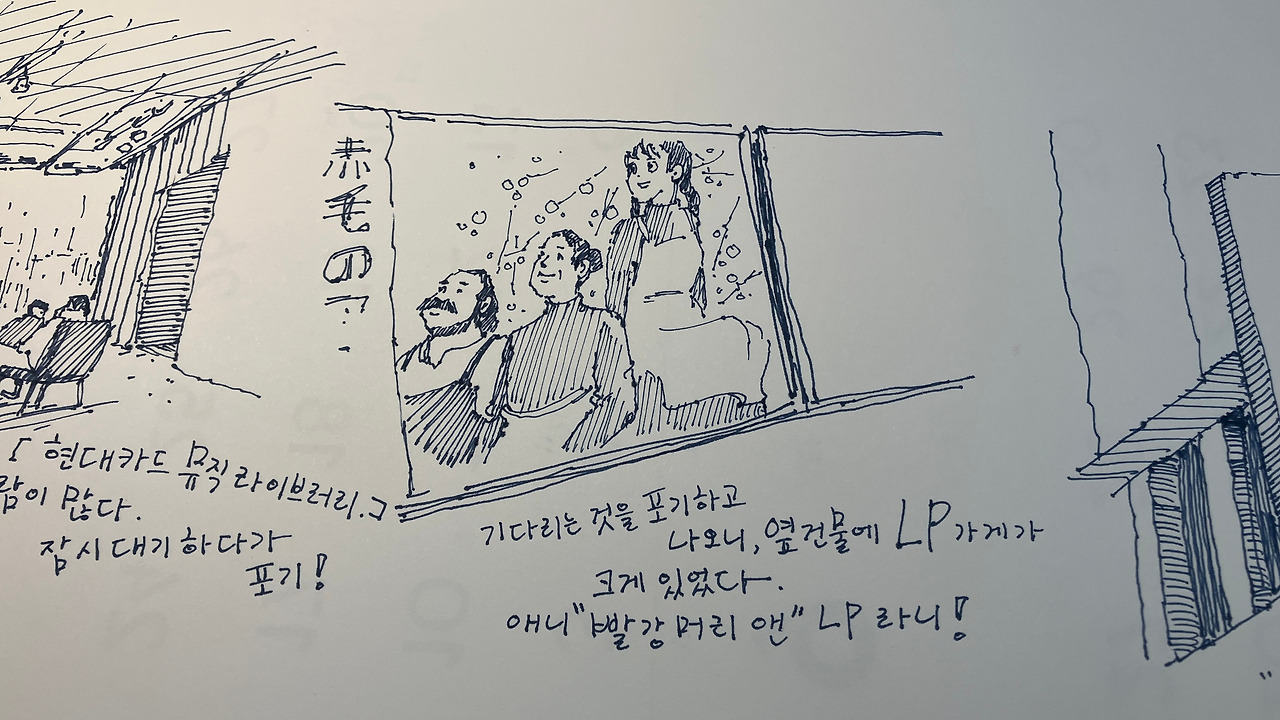 「현대카드 뮤직라이브러리.」
람이 많다.
잠시 대기하다가
포기!
赤毛の
기다리는 것을 포기하고
나오니, 옆건물에 LP가게가
크게 있었다.
애니 "빨강머리 앤" LP라니!